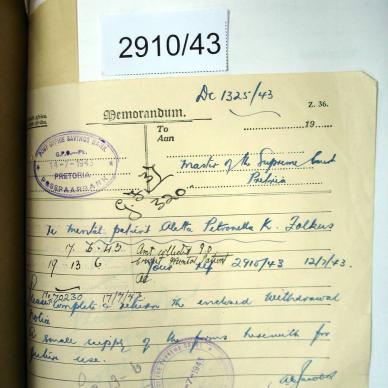 2910/43
De 1325/43
Memorandum.
Z. 36.
To
Aan
19
POST OFFICE SAVINGS BANK
G.P.O.
14-7-1943
PRETORIA
POSSPAARBANK
Master of the Supreme Court
Pretoria
320
Re mental patient Aletta Petronella K. Folkers
7. 6. 43 Amt collected
19 - 13 6 Your Ref 2910/43 12/7/43.
70230 17/7/43
Please complete & return the enclosed Withdrawal
Notice
A small supply of the forms herewith for
future use.